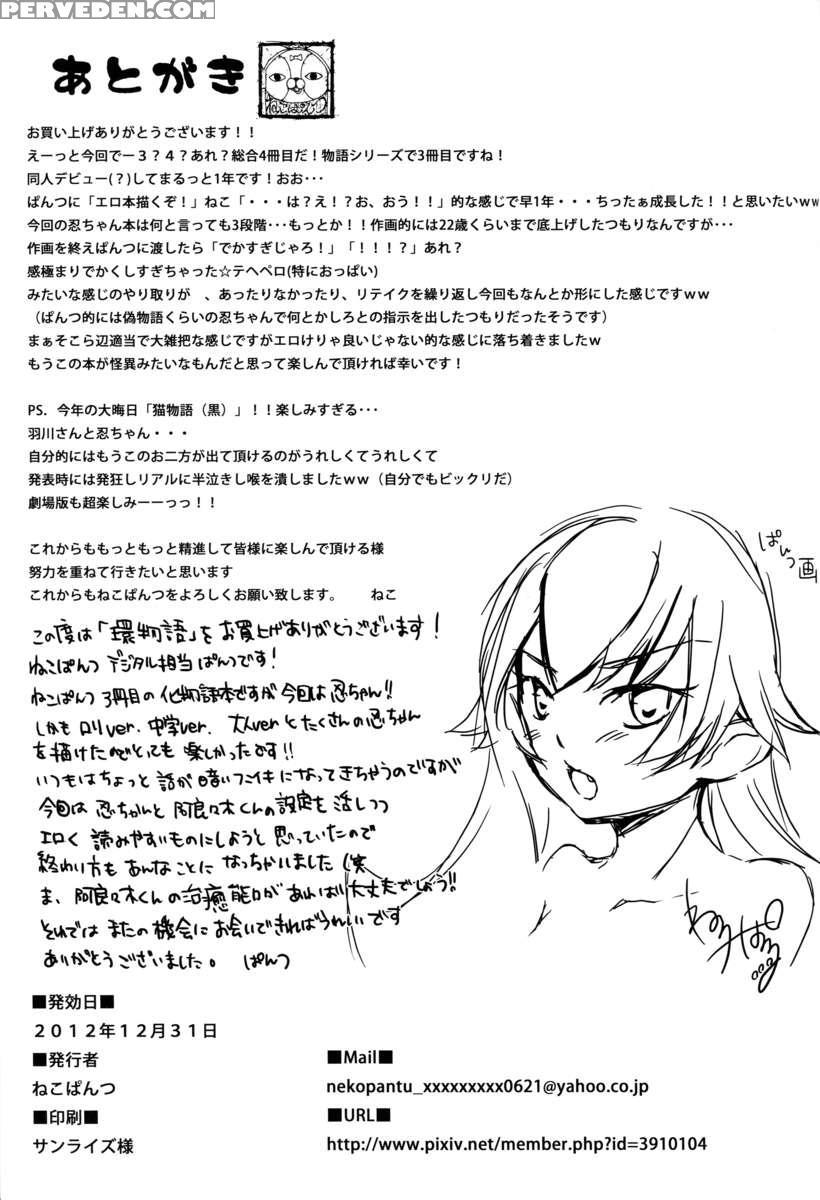 PERVEDEN.COM
あとがき
ねこぱんつ
お買い上げありがとうございます！！
えーっと今回でー３？４？あれ？総合4冊目だ！物語シリーズで3冊目ですね！
同人デビュー(？)してまるっと1年です！おお･･･
ぱんつに「エロ本描くぞ！」ねこ「・・・は？え！？お、おう！！」的な感じで早1年・・・ちったぁ成長した！！と思いたいｗｗ
今回の忍ちゃん本は何と言っても3段階･･･もっとか！！作画的には22歳くらいまで底上げしたつもりなんですが･･･
作画を終えぱんつに渡したら「でかすぎじゃろ！」「！！！？」あれ？
感極まりでかくしすぎちゃった☆テヘペロ(特におっぱい)
みたいな感じのやり取りが　、あったりなかったり、リテイクを繰り返し今回もなんとか形にした感じですｗｗ
（ぱんつ的には偽物語くらいの忍ちゃんで何とかしろとの指示を出したつもりだったそうです）
まぁそこら辺適当で大雑把な感じですがエロけりゃ良いじゃない的な感じに落ち着きましたｗ
もうこの本が怪異みたいなもんだと思って楽しんで頂ければ幸いです！
PS．今年の大晦日「猫物語（黒）」！！楽しみすぎる･･･
羽川さんと忍ちゃん・・・
自分的にはもうこのお二方が出て頂けるのがうれしくてうれしくて
発表時には発狂しリアルに半泣きし喉を潰しましたｗｗ（自分でもビックリだ）
劇場版も超楽しみーーっっ！！
これからももっともっと精進して皆様に楽しんで頂ける様
努力を重ねて行きたいと思います
これからもねこぱんつをよろしくお願い致します。　　ねこ
ぱんつ画
この度は「環物語」をお買上げありがとうございます！
ねこぱんつ デジタル担当 ぱんつです！
ねこぱんつ 3冊目の化物語本ですが今回は忍ちゃん!!
しかもロリver. 中学ver. 大人verとたくさんの忍ちゃん
を描けたのでとても楽しかったです!!
いつもはちょっと話が暗いフンイキになってきちゃうのですが
今回は忍ちゃんと阿良々木くんの設定を活しつつ
エロく読みやすいものにしようと思っていたので
終わり方もあんなことになっちゃいました(笑
ま、阿良々木くんの治癒能力があれば大丈夫でしょう!!
それではまたの機会にお会いできればうれしいです
ありがとうございました。　ぱんつ
■発効日■
２０１２年１２月３１日
■発行者
ねこぱんつ
■印刷■
サンライズ様
■Mail■
nekopantu_xxxxxxxxx0621@yahoo.co.jp
■URL■
http://www.pixiv.net/member.php?id=3910104